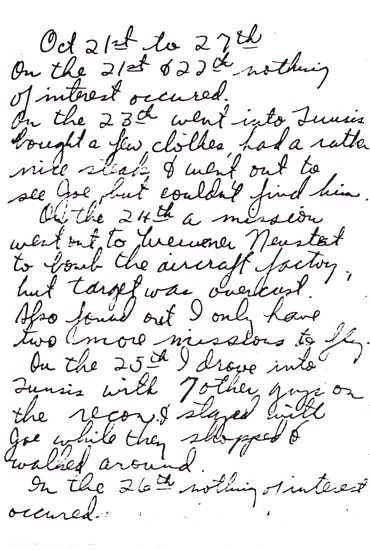 Oct 21st to 27th
On the 21st & 22th nothing
of interest occured.
On the 23th went into Tunsis
bought a few clothes, had a rather
nice steak, & went out to
see Joe, but couldn't find him.
On the 24th a mission
went out to Weinener Neustat
to bomb the aircraft factory,
but target was overcast.
Also found out I only have
two more missions to fly.
On the 25th I drove into
Tunsis with 7 other guys on
the recon. & stayed with
Joe while they shopped &
walked around.
On the 26th nothing of interest
occured.